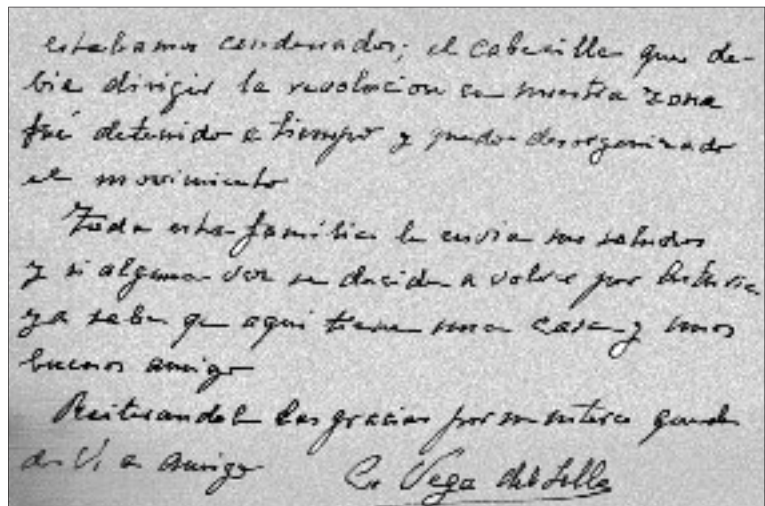 estabamos condenados; el cabecilla que de-
bia dirigir la revolucion en nuestra zona
fué detenido a tiempo y quedo desorganizado
el movimiento
Toda esta familia le envia sus saludos
y si alguna vez se decide a volver por Asturias
ya sabe que aqui tiene una casa y unos
buenos amigos
Reiterandole las gracias por su interes queda
de V. a amigo
C. Vega del Sella